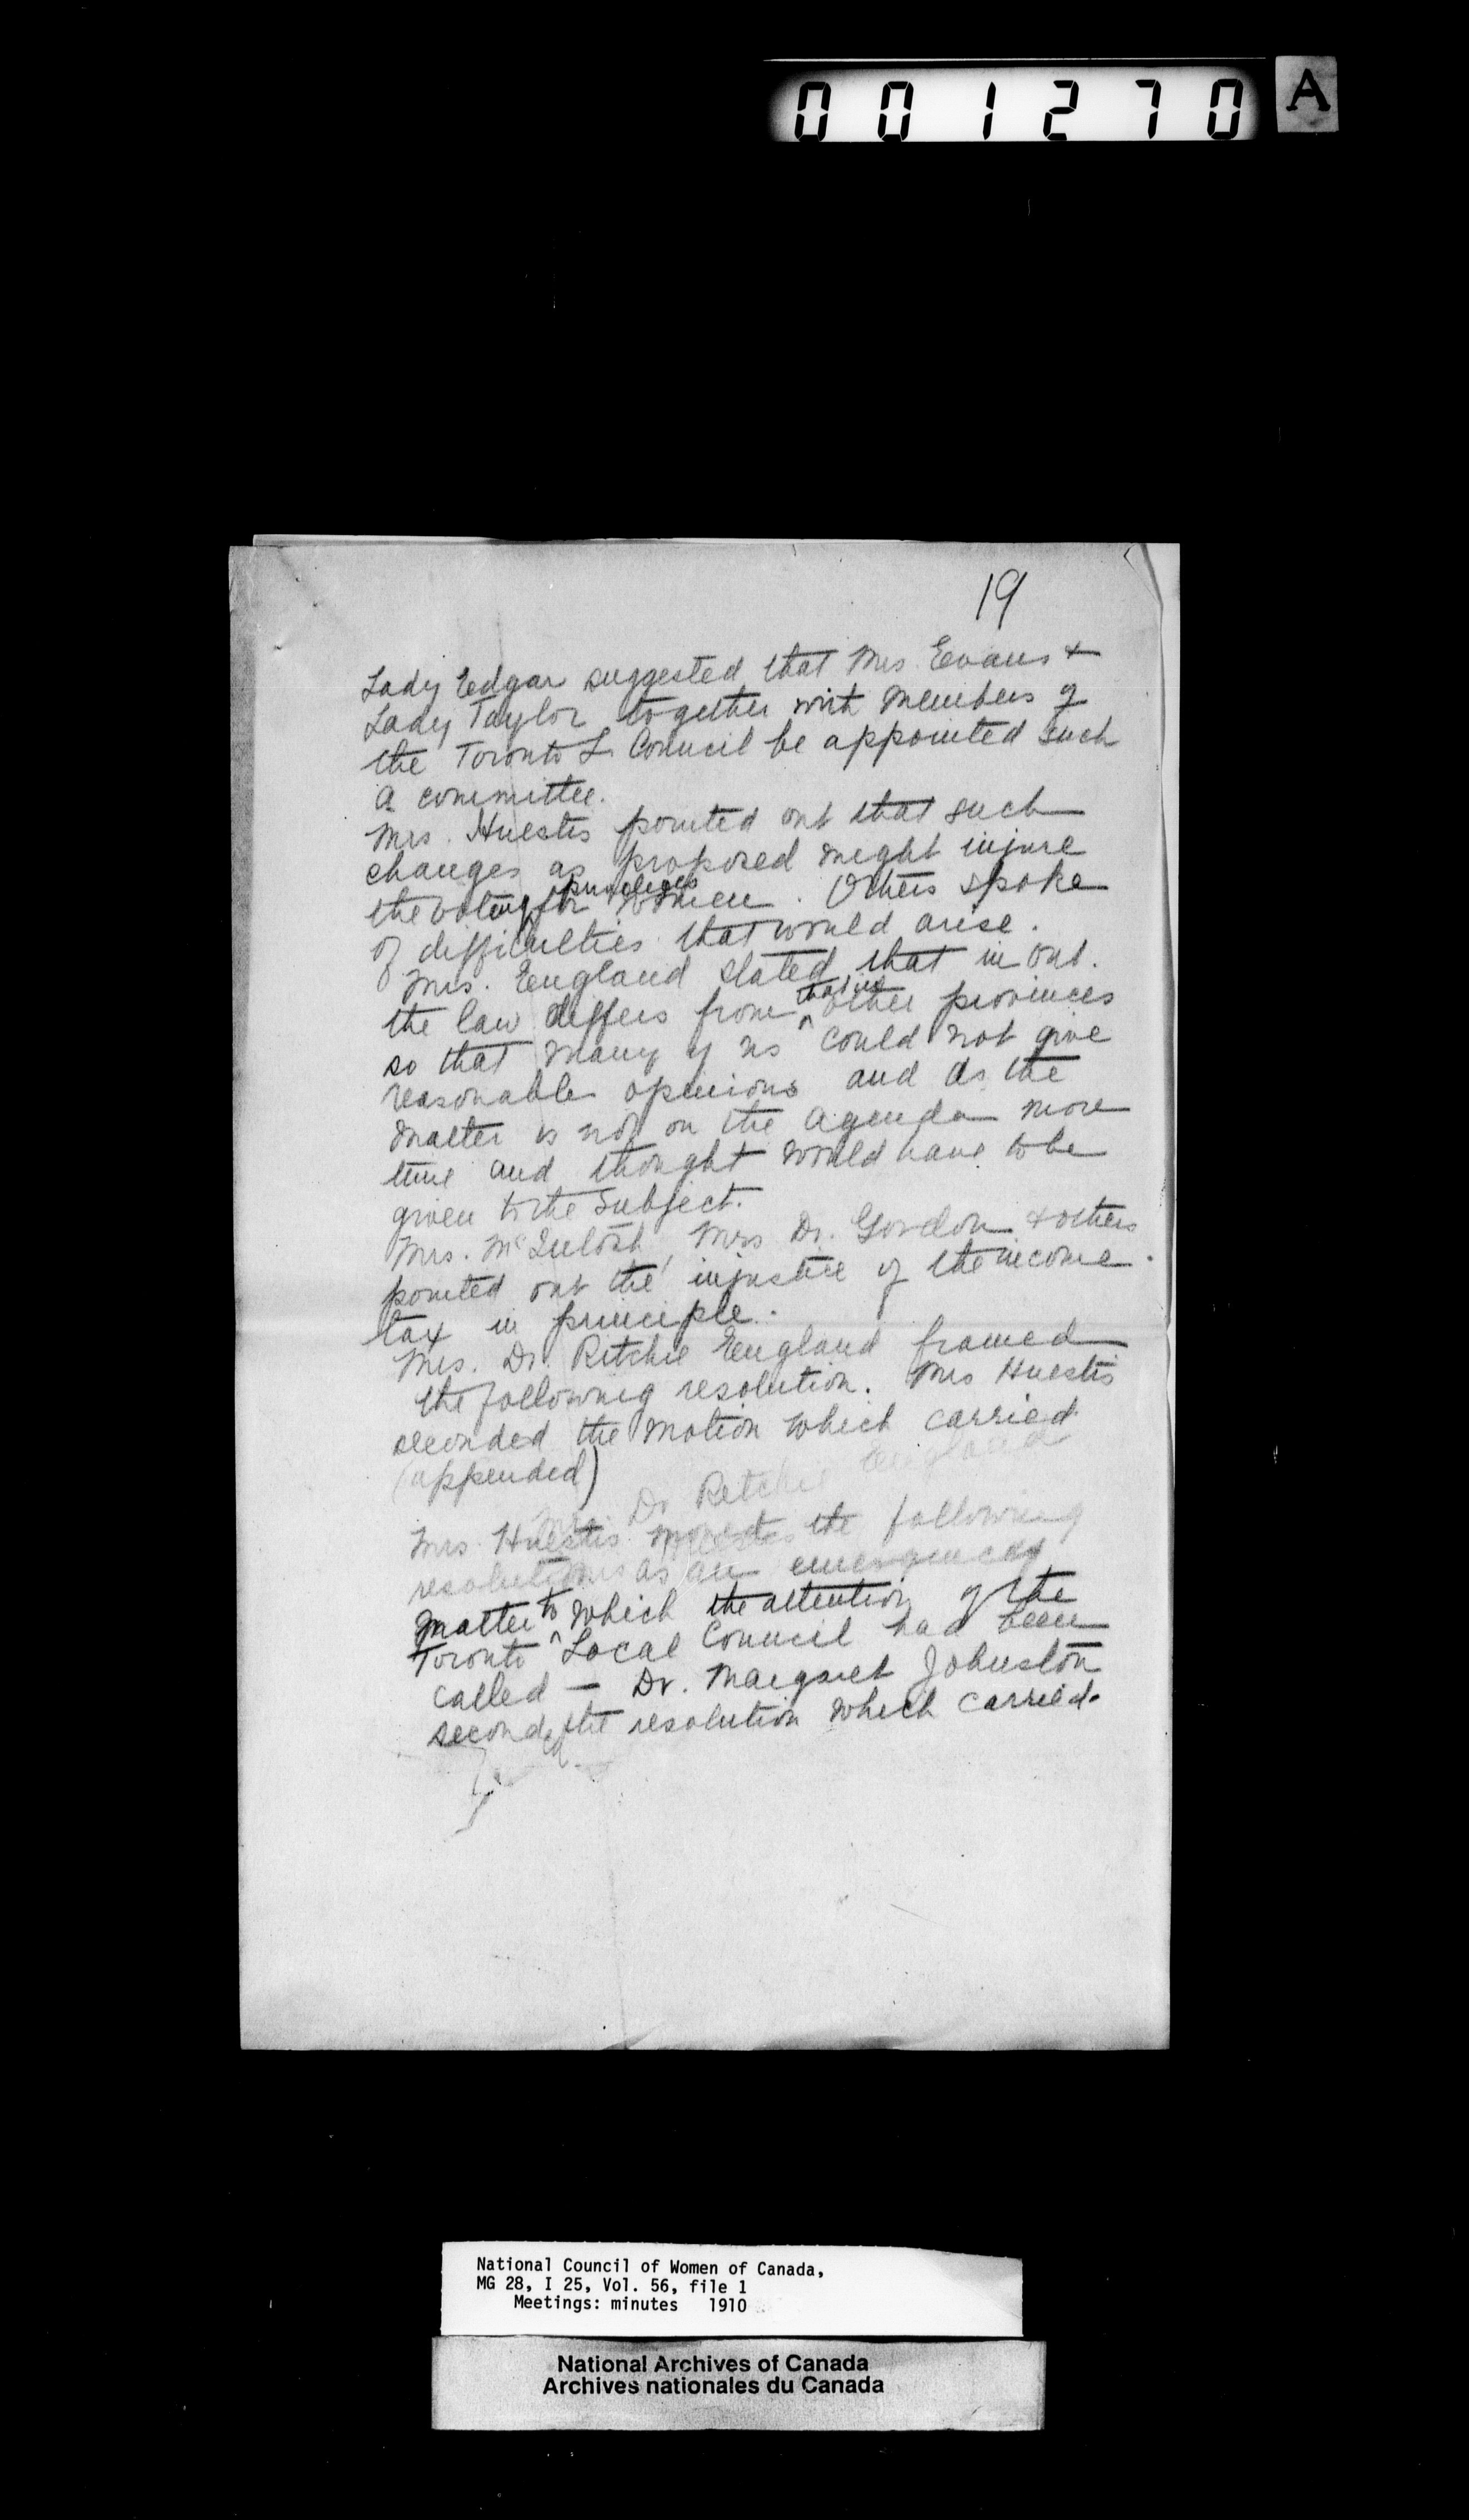 001270 A
19
Lady Edgar suggested that Mrs. Evans +
Lady Taylor together with members of
the Toronto L. Council be appointed such
a committee.
Mrs. Huestis pointed out that such
changes as proposed might injure
the voting privileges for women. Others spoke
of difficulties that would arise.
Mrs. England stated that in Ont.
the law differs from that in other provinces
so that many of us could not give
reasonable opinions and as the
matter is not on the Agenda more
time and thought would have to be
given to the subject.
Mrs. McIntosh, Mrs Dr. Gordon + others
pointed out the injustice of the income
tax in principle.
Mrs. Dr. Ritchie England framed
the following resolution. Mrs Huestis
seconded the motion which carried
(appended)
Dr Ritchie England
Mrs. Huestis the following
resolution as an emergency
matter to which the attention of the
Toronto Local Council had been
called — Dr. Margaret Johnston
seconded the resolution which carried.
National Council of Women of Canada,
MG 28, I 25, Vol. 56, file 1
Meetings: minutes 1910
National Archives of Canada
Archives nationales du Canada